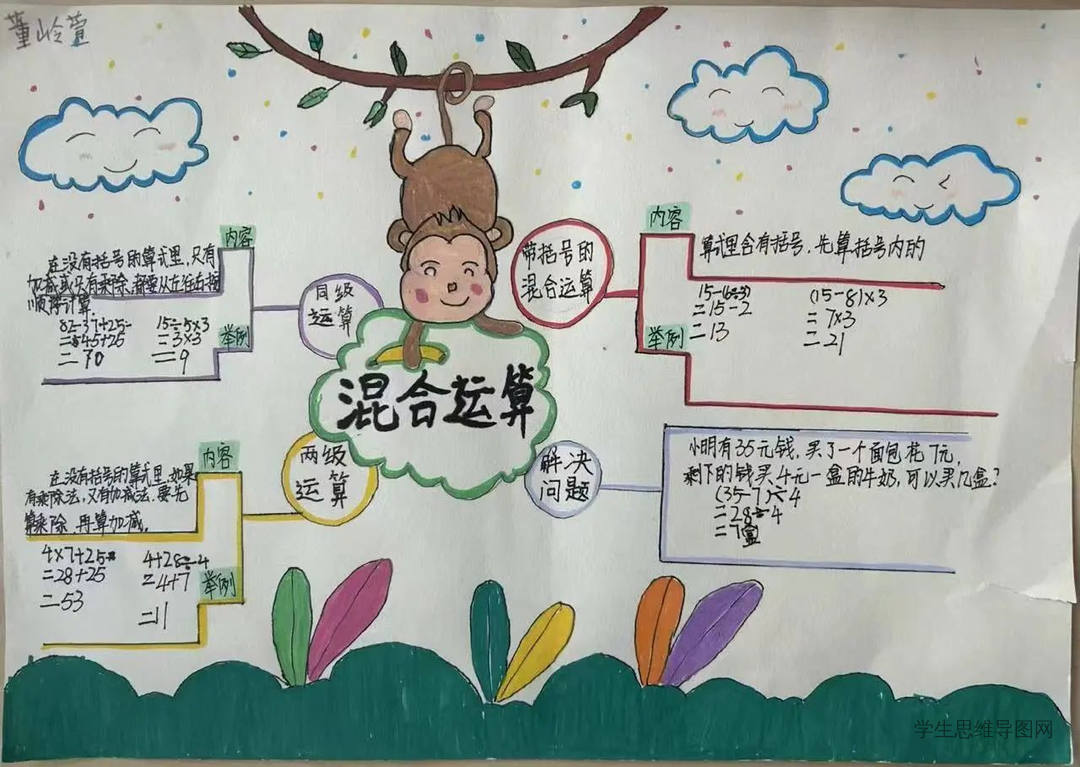 董岭萱
混合运算
同级
运算
内容
在没有括号的算式里,只有
加减或只有乘除,都要从左往右按
顺序计算.
举例
82-37+25=
=45+25
=70
15÷5×3
=3×3
=9
两级
运算
内容
在没有括号的算式里,如果
有乘除法,又有加减法,要先
算乘除,再算加减.
举例
4×7+25
=28+25
=53
4+28÷4
=4+7
=11
带括号的
混合运算
内容
算式里含有括号,先算括号内的
举例
15-(6÷3)
=15-2
=13
(15-8)×3
=7×3
=21
解决
问题
小明有35元钱,买了一个面包花7元,
剩下的钱买4元一盒的牛奶,可以买几盒?
(35-7)÷4
=28÷4
=7盒
学生思维导图网